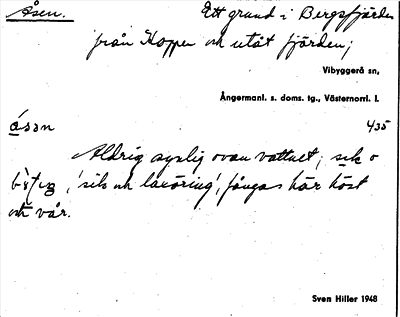 Åsen. Ett grund i Bergsfjärden
från Koppen och utåt fjärden;
Vibyggerå sn,
Ångermanl. s. doms. tg., Västernorrl. l.
åsan 4/35
Aldrig synlig ovan vattnet; sik o
'sik och laxöring', fångas här höst
och vår.
Sven Hiller 1948